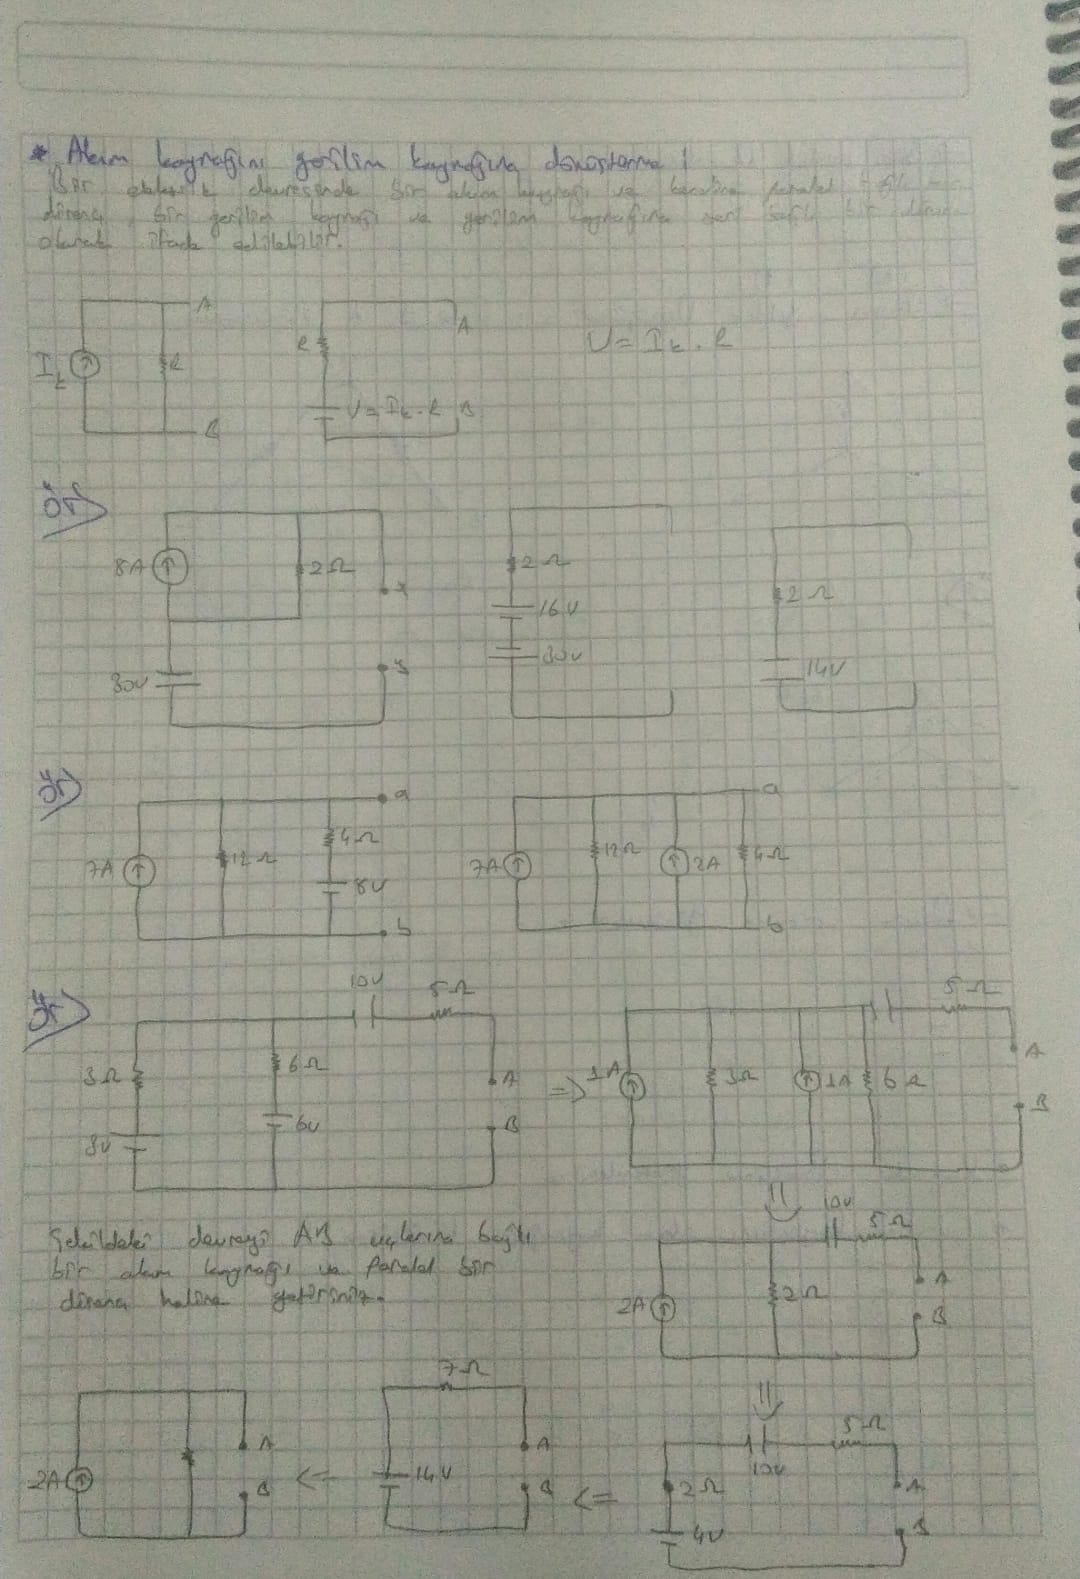 * Akım kaynağını gerilim kaynağına dönüştürme !
Bir elektrik devresinde bir akım kaynağı ve kendine paralel
direnç, bir gerilim kaynağı ve gerilim kaynağına seri bağlı bir direnç
olarak ifade edilebilir.
I_k R A B
R V = I_k . R A B
V = I_k . R
Ör
8A 2Ω 30V
2Ω 16V 30V
2Ω 14V
Ör
7A 12Ω 4Ω 8V a b
7A 12Ω 2A 4Ω a b
Ör
10V 5Ω 3Ω 6Ω 6V A B
=> 1A 3Ω 1A 6Ω 5Ω A B
Şekildeki devreyi AB uçlarına bağlı
bir akım kaynağı ve Paralel bir
direnç haline getiriniz.
10V 5Ω 2A 2Ω A B
2A A B
<= 7Ω 14V A B
<= 10V 5Ω 2Ω 4V A B